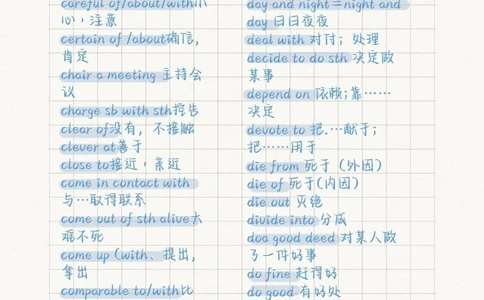 careful of/about/with小
心,注意
certain of /about确信,
肯定
chair a meeting 主持会
议
charge sb with sth控告
clear of没有,不接触
clever at善于
close to接近,亲近
come in contact with
与…取得联系
come out of sth alive大
难不死
come up (with、提出,
拿出
comparable to/with比
day and night=night and
day 日日夜夜
deal with 对付;处理
decide to do sth 决定做
某事
depend on 依赖;靠……
决定
devote to 把.…献于;
把……用于
die from 死于(外因)
die of 死于(内因)
die out 灭绝
divide into 分成
doa good deed 对某人做
了一件好事
do fine 赶得好
do good 有好处